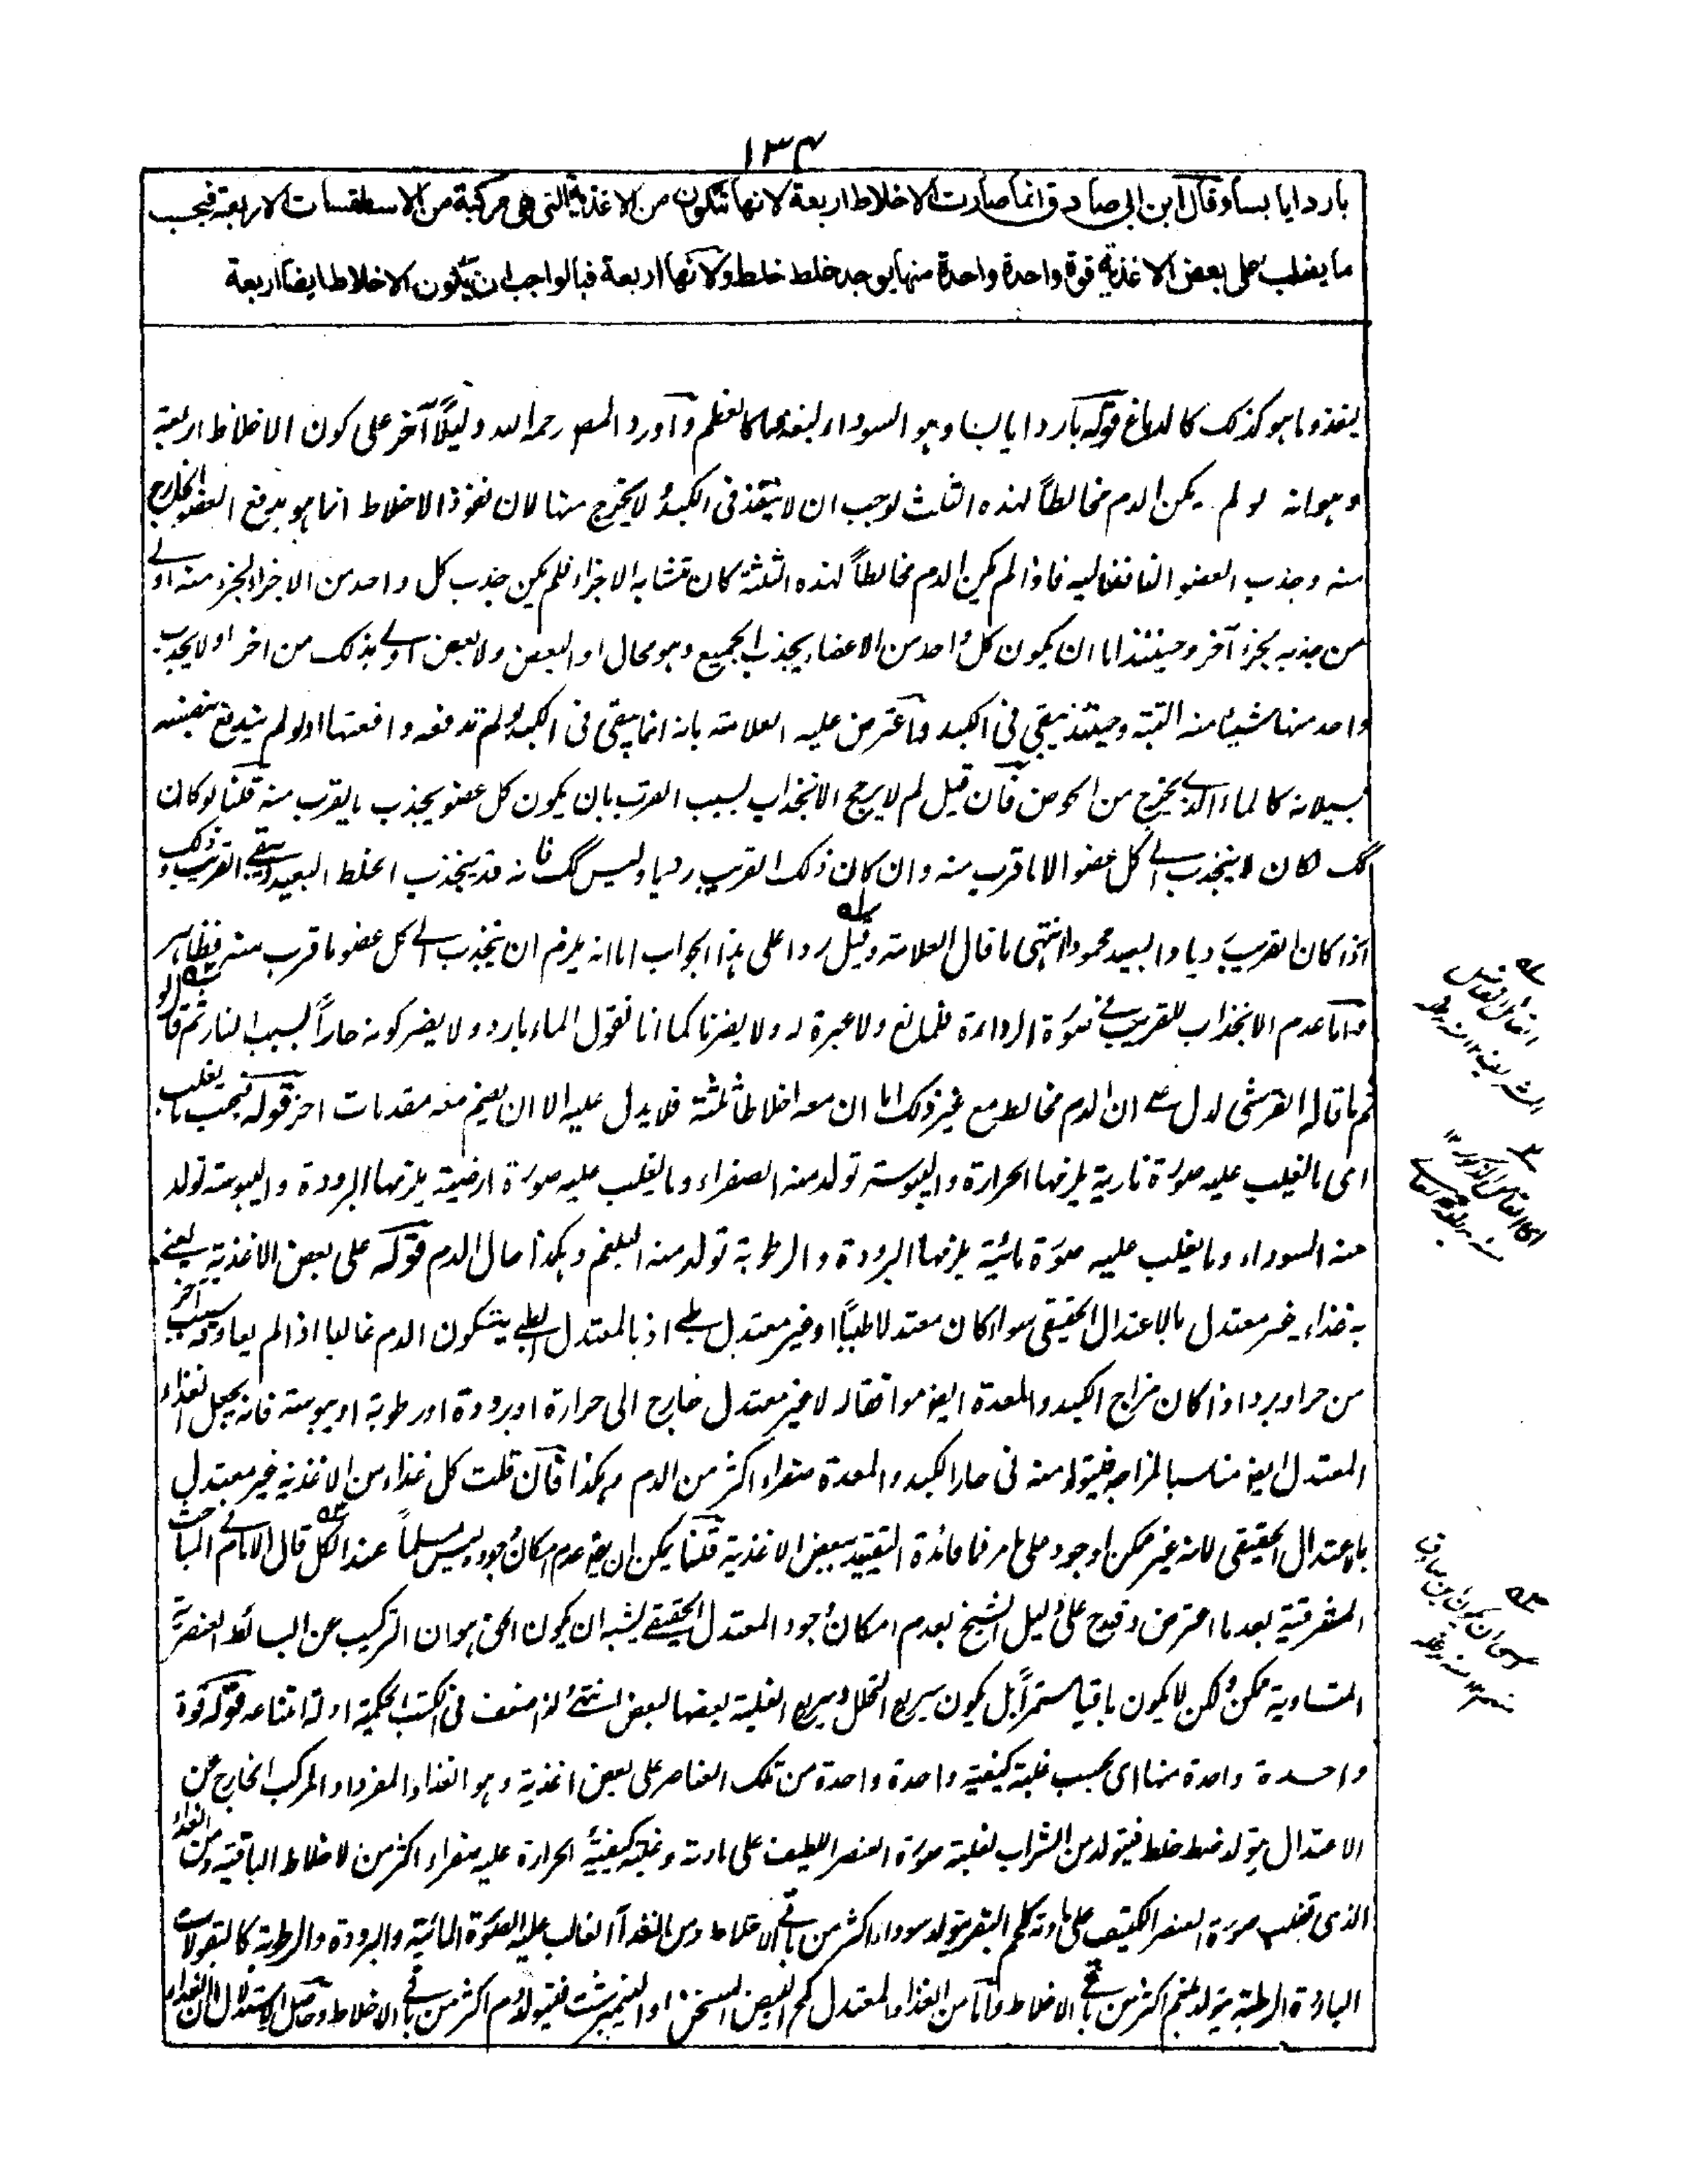 ١٣٤
باردا يابسا وقال ابن ابى صادق انما صارت الاخلاط اربعة لانها تتكون من الاغذية التى هى مركبة من الاسطقسات الاربعة فيجب
ما يغلب على بعض الاغذية قوة واحدة واحدة منها يوجد خلط خلط ولانها اربعة فبالواجب ان يكون الاخلاط ايضا اربعة
يغذو ما هو كذلك كالدماغ قوله باردا يابسا وهو السوداء ليغذو كالعظم وآورد المصر رحمه الله دليلاً آخر على كون الاخلاط اربعة
وهو انه لو لم يكن الدم مخالطاً لهذه الثلث لوجب ان لا ينفذ فى الكبد ولا يخرج منها لان نفوذ الاخلاط انما هو بدفع العضو الخارج
منه وجذب العضو النافذ اليه فاذا لم يكن الدم مخالطاً لهذه الثلثة كان متشابه الاجزاء فلم يكن جذب كل واحد من الاجزاء لجزء منه اولى
من جذبه بجزء آخر وحينئذ اما ان يكون كل واحد من الاعضاء يجذب الجميع وهو محال او البعض ولا بعض اولى بذلك من اخر او لا يجذب
واحد منها شيئا منه البتة وحينئذ يبقى فى الكبد واعترض عليه العلامة بانه انما يبقى فى الكبد لو لم تدفعه دافعتها او لو لم يندفع بنفسه
بسيلانه كالماء الذى يخرج من الحوض فان قيل لم لا يرجح الانجذاب بسبب القرب بان يكون كل عضو يجذب ما يقرب منه قلنا لو كان
كك لكان لا ينجذب الى كل عضو الا ما قرب منه وان كان ذلك القريب رديا وليس كك فانه قد ينجذب الخلط البعيد ويبقى القريب وذلك
اذا كان القريب رديا والبعيد محمودا انتهى ما قال العلامة وقيل ردا على هذا الجواب اما انه يلزم ان ينجذب الى كل عضو ما قرب منه فظاهر
واما عدم الانجذاب للقريب فى صورة الرداءة فلمانع ولا عبرة له ولا يضرنا كما انا نقول الماء بارد ولا يضر كونه حاراً بسبب النار ثم قالوا
ثم ما قاله القرشى لدل على ان الدم مخالط مع غير ذلك اما ان معه اخلاطا ثلثة فلا يدل عليه الا ان يضم معه مقدمات اخر قوله فيجب ما يغلب
اى ما تغلب عليه صورة نارية يلزمها الحرارة واليبوسة تولد منه الصفراء وما يغلب عليه صورة ارضية يلزمها البرودة واليبوسة تولد
منه السوداء وما يغلب عليه صورة مائية يلزمها البرودة والرطوبة تولد منه البلغم وهكذا حال الدم قوله على بعض الاغذية يعنى
به غذاء غير معتدل بالاعتدال الحقيقى سواء كان معتدلا طبياً او غير معتدل طبى اذ بالمعتدل الطبى يتكون الدم غالبا اذا لم يعاوقه سبب آخر
من حر او برد اذا كان مزاج الكبد والمعدة ايضا موافقا له لا غير معتدل خارج الى حرارة او برودة او رطوبة او يبوسة فانه يجعل الغذاء
المعتدل ايضا مناسبا لمزاجه فيتولد منه فى حار الكبد والمعدة صفراء اكثر من الدم وهكذا فان قلت كل غذاء من الاغذية غير معتدل
بالاعتدال الحقيقى لانه غير ممكن الوجود على ما مر فما فائدة التقييد ببعض الاغذية قلنا يمكن ان يق عدم امكان وجوده ليس مسلماً عند الكل قال الامام فى المباحث
المشرقية بعد ما اعترض وقدح على دليل الشيخ بعدم امكان وجود المعتدل الحقيقى يشبه ان يكون الحق هو ان التركيب عن البسائط العنصرية
المتساوية ممكن ولكن لا يكون باقيا مستمراً بل يكون سريع التحلل وسريع الغلبة بعضها لبعض انتهى ولذا ضعف فى الكتب الحكمية ادلة امتناعه قوله قوة
واحدة واحدة منها اى بحسب غلبة كيفية واحدة واحدة من تلك العناصر على بعض اغذية وهو الغذاء المفرد او المركب الخارج عن
الاعتدال يتولد خلط خلط فيتولد من الشراب لغلبة صورة العنصر اللطيف على مادته وغلبة كيفية الحرارة عليه صفراء اكثر من الاخلاط الباقية ومن الغذاء
الذى تغلب صورة العنصر الكثيف على مادته كلحم البقر يتولد سوداء اكثر من باقى الاخلاط ومن الغذاء الغالب عليه الصورة المائية والبرودة والرطوبة كالبقولات
الباردة الرطبة يتولد بلغم اكثر من باقى الاخلاط واما من الغذاء المعتدل كمح البيض المسخن او النيمبرشت فيتولد دم اكثر من باقى الاخلاط وحاصل الاستدلال ان الغذاء